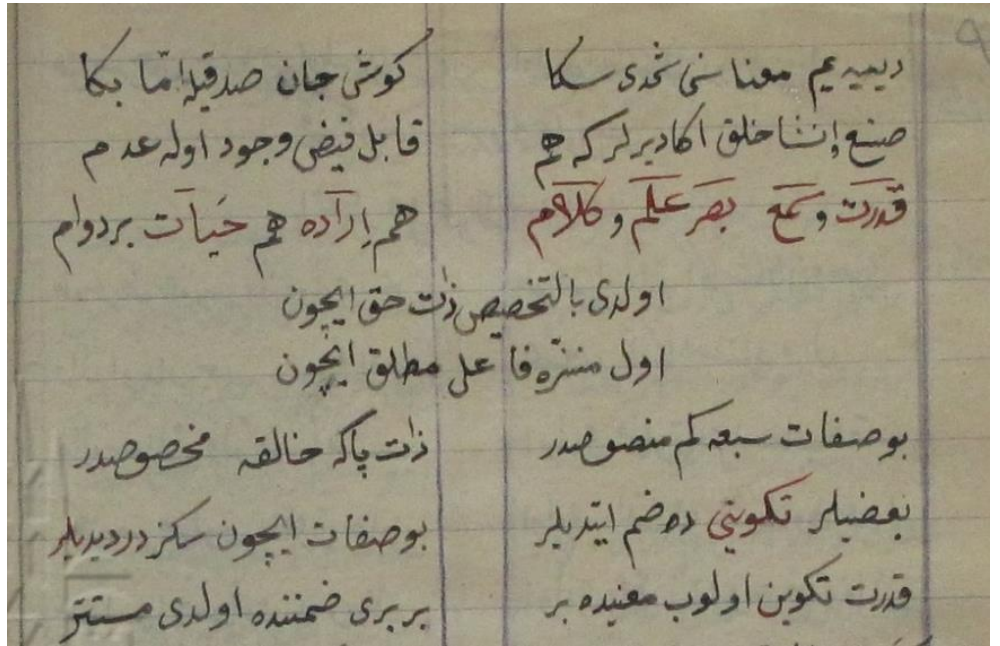 دییه یم معناسنی شمدی سكا كوش جان صدقیله امّا بكا
صنع و انشا خلق اكا دیرلر كه هم قابل فیض وجود اوله عدم
قدرت و سمع بصر علم و كلام هم اِراده هم حَیات بردوام
اولدی بالتخصیص ذات حق ایچون
اول منزّه فاعل مطلق ایچون
بو صفات سبعه كم منصوصدر ذات پاك خالقه مخصوصدر
بعضیلر تكوینی ده ضم ایتدیلر بو صفات ایچون سكز در دیدیلر
قدرت تكوین اولوب معنیده بر بربری ضمننده اولدی مستتر